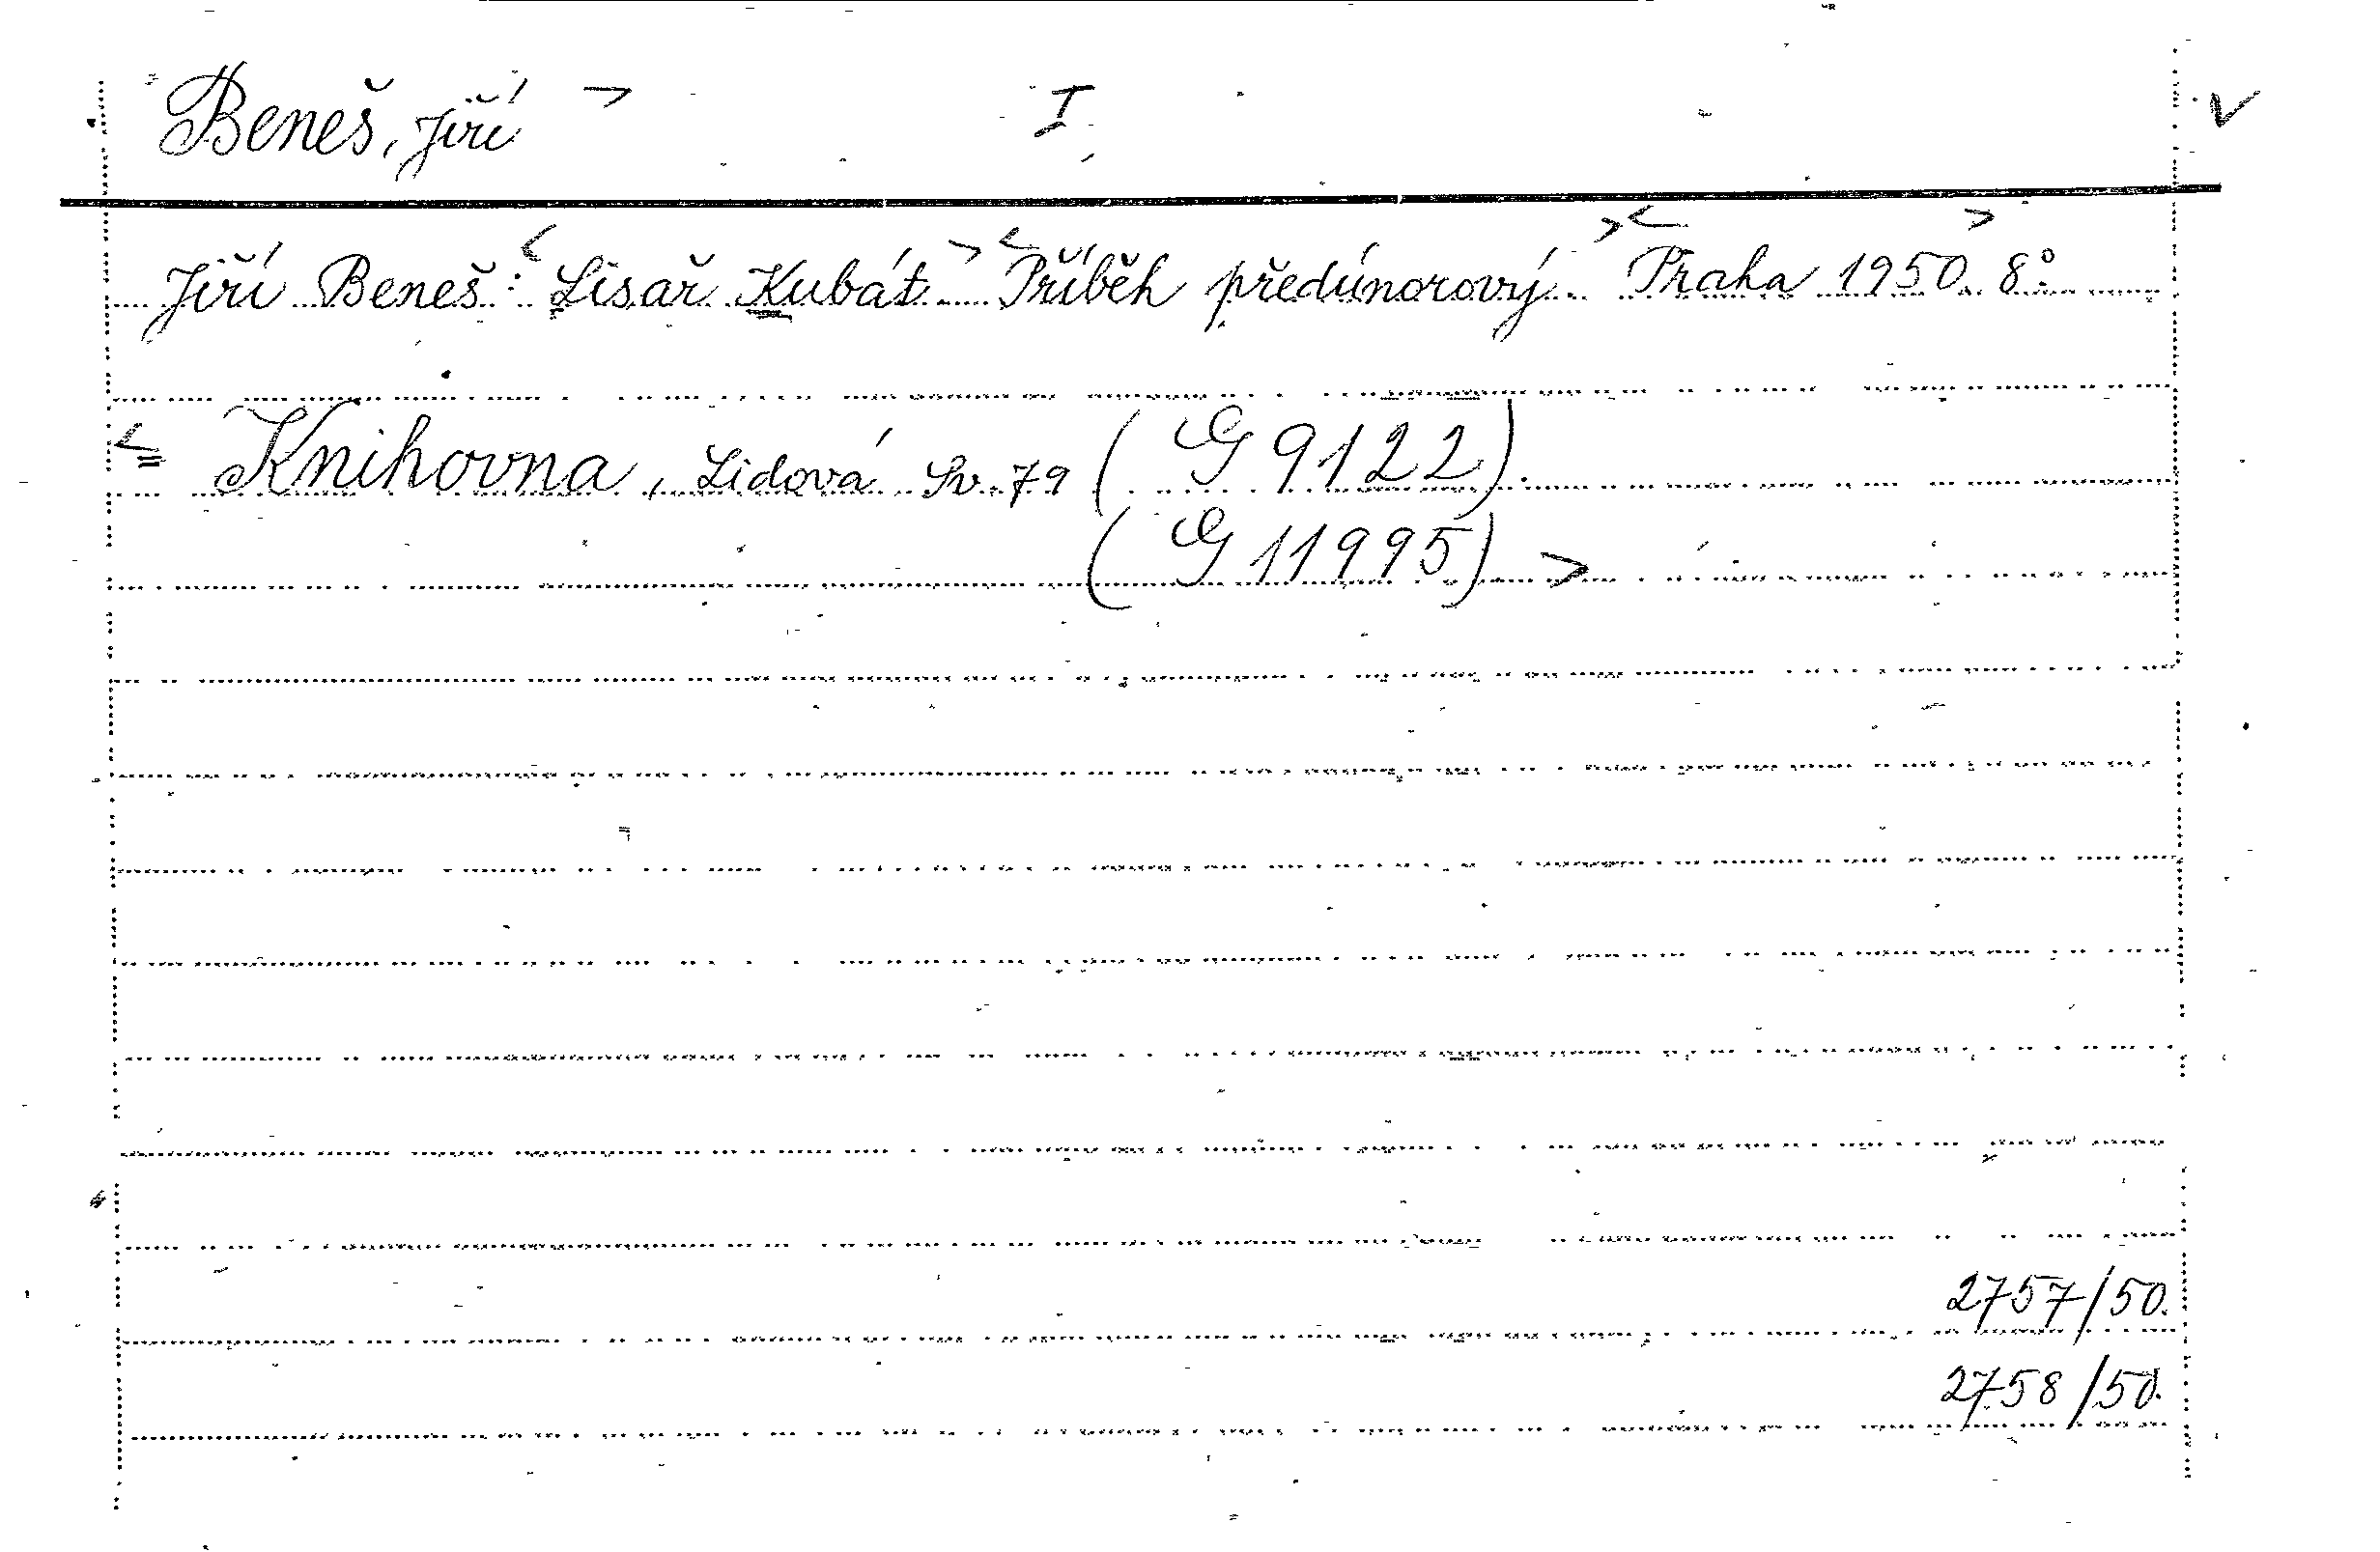 Beneš, Jiří > I V
Jiří Beneš: < Lisař Kubát > < Příběh předúnorový > < Praha 1950 > 8°
< = Knihovna, Lidová Sv. 79 (G 9122).
(G 11995) >
2757/50.
2758/50.